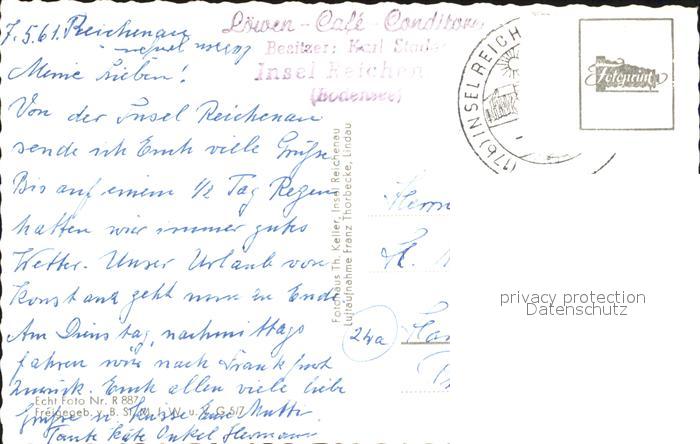 7.5.61. Reichenau
Löwen-Café-Conditorei
Besitzer: Karl
Insel Reichen
(Bodensee)
(17b) INSEL REICH
Fotoprint
Meine Lieben!
Von der Insel Reichenau
sende ich Euch viele Grüße
Bis auf einem 1/2 Tag Regen
hatten wir immer gutes
Wetter. Unser Urlaub von
Konstanz geht nun zu Ende
Am Dienstag, nachmittags
fahren wir nach Frankfurt
zurück. Euch allen viele liebe
Grüße u. Küsse Eure Mutti
Tante Käte Onkel Hermann
Echt Foto Nr. R 887
Freigegeb. v. B. St. M. f. W. u. V. G 5/7
Fotohaus Th. Keller, Insel Reichenau
Luftaufnahme Franz Thorbecke, Lindau
Herrn
H.
24a
Ha
privacy protection
Datenschutz